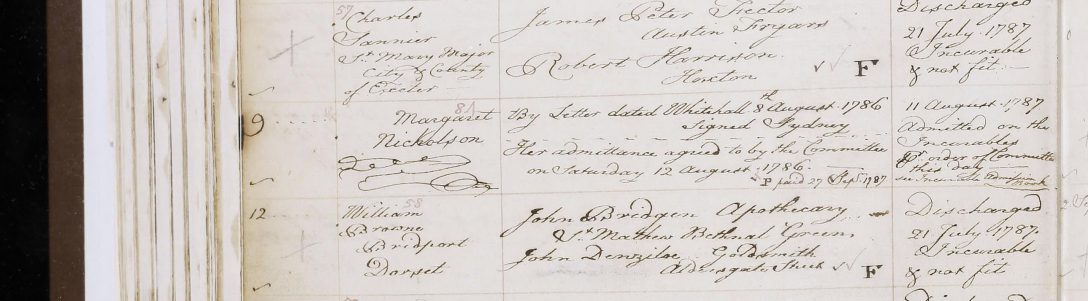 57
Charles
Tannier
St. Mary Major
City & County
of Exeter
James Peter Fector
Austin Fryars
Robert Harrison
Hoxton
F
Discharged
21 July 1787
Incurable
& not fit
9
81
Margaret
Nicholson
By Letter dated Whitehall 8th August 1786
Signed Sydney
Her admittance agreed to by the Committee
on Saturday 12 August 1786
P paid 27 Sepr. 1787
11 August 1787
Admitted on the
Incurables
P order of Committee
this day
see Incurable Admission
Book
12
58
William
Browne
Bridport
Dorset
John Bridgen Apothecary
St. Mathew Bethnal Green
John Denziloe Goldsmith
Aldersgate Street
F
Discharged
21 July 1787.
Incurable
& not fit